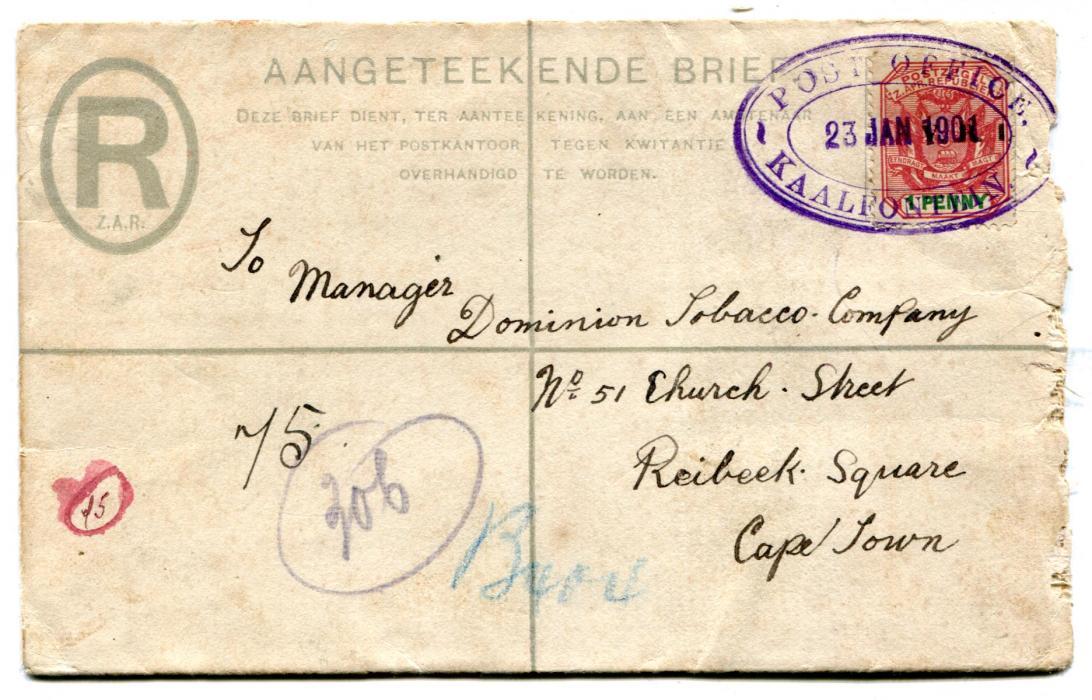 AANGETEEKENDE BRIEF
R
Z.A.R.
DEZE BRIEF DIENT, TER AANTEEKENING, AAN EEN AMBTENAAR
VAN HET POSTKANTOOR TEGEN KWITANTIE
OVERHANDIGD TE WORDEN.
POST OFFICE,
23 JAN 1901
KAALFONTEIN.
POSTZEGEL
Z. AFR. REPUBLIEK
EENDRAGT MAAKT MAGT
1 PENNY
To
Manager
Dominion Tobacco. Company
No 51 Church. Street
Reibeek. Square
Cape Town
75
206
75